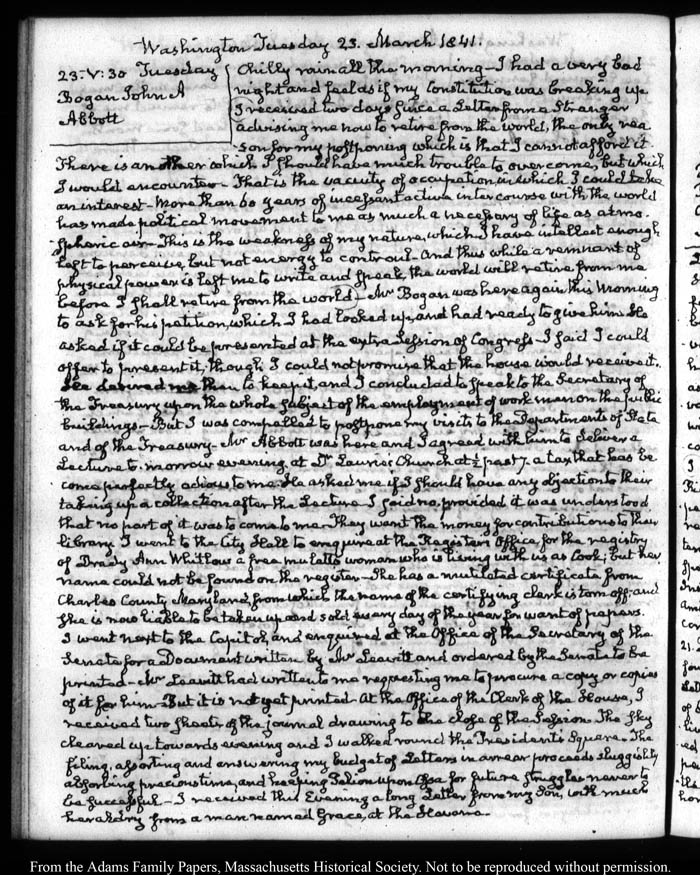 Washington Tuesday 23. March 1841.
23. V: 30 Tuesday
Bogan John A
Abbott
Chilly rain all the morning— I had a very bad
night and feel as if my Constitution was breaking up
I received two days since a Letter from a Stranger
advising me now to retire from the world, the only rea-
son for my postponing which is that I cannot afford it.
There is another which I should have much trouble to overcome, but which
I would encounter— That is the vacuity of occupation in which I could take
an interest— More than 60 years of incessant active intercourse with the world
has made political movement to me as much a necessary of life as atmo-
spheric air— This is the weakness of my nature, which I have intellect enough
left to perceive, but not energy to controul— And thus while a remnant of
physical power is left me to write and speak, the world will retire from me
before I shall retire from the world— Mr Bogan was here again this morning
to ask for his petition, which I had looked up, and had ready to give him. He
asked if it could be presented at the extra Session of Congress— I said I could
offer to present it, though I could not promise that the house would receive it.
He desired me then to keep it, and I concluded to speak to the Secretary of
the Treasury upon the whole subject of the employment of workmen on the public
buildings— But I was compelled to postpone my visits to the Departments of State
and of the Treasury— Mr Abbott was here and I agreed with him to deliver a
Lecture to-morrow evening, at Dr Laurie's Church at ½ past 7. a tax that has be
come perfectly odious to me. He asked me if I should have any objection to their
taking up a collection after the Lecture I said no, provided it was understood
that no part of it was to come to me. They want the money for contributions to their
library. I went to the City Hall to enquire at the Registers Office, for the registry
of Drady Ann Whitlow a free mulatto woman who is living with us as Cook; but her
name could not be found on the register— She has a mutilated certificate from
Charles County Maryland, from which the name of the certifying clerk is torn off, and
she is now liable to be taken up and sold every day of the year for want of papers.
I went next to the Capitol, and enquired at the Office of the Secretary of the
Senate for a Document written by Mr Leavitt and ordered by the Senate to be
printed— Mr Leavitt had written to me requesting me to procure a copy or copies
of it for him— But it is not yet printed. At the Office of the Clerk of the House, I
received two sheets of the journal drawing to the close of the Session. The sky
cleared up towards evening and I walked round the President's Square. The
filing, assorting and answering my budget of Letters in arrear proceeds sluggishly
absorbing precious time, and heaping Pelion upon Ossa for future struggles never to
be successful— I received this Evening a long Letter from my Son, with much
heraldry from a man named Grace, at the Havanna.
From the Adams Family Papers, Massachusetts Historical Society. Not to be reproduced without permission.